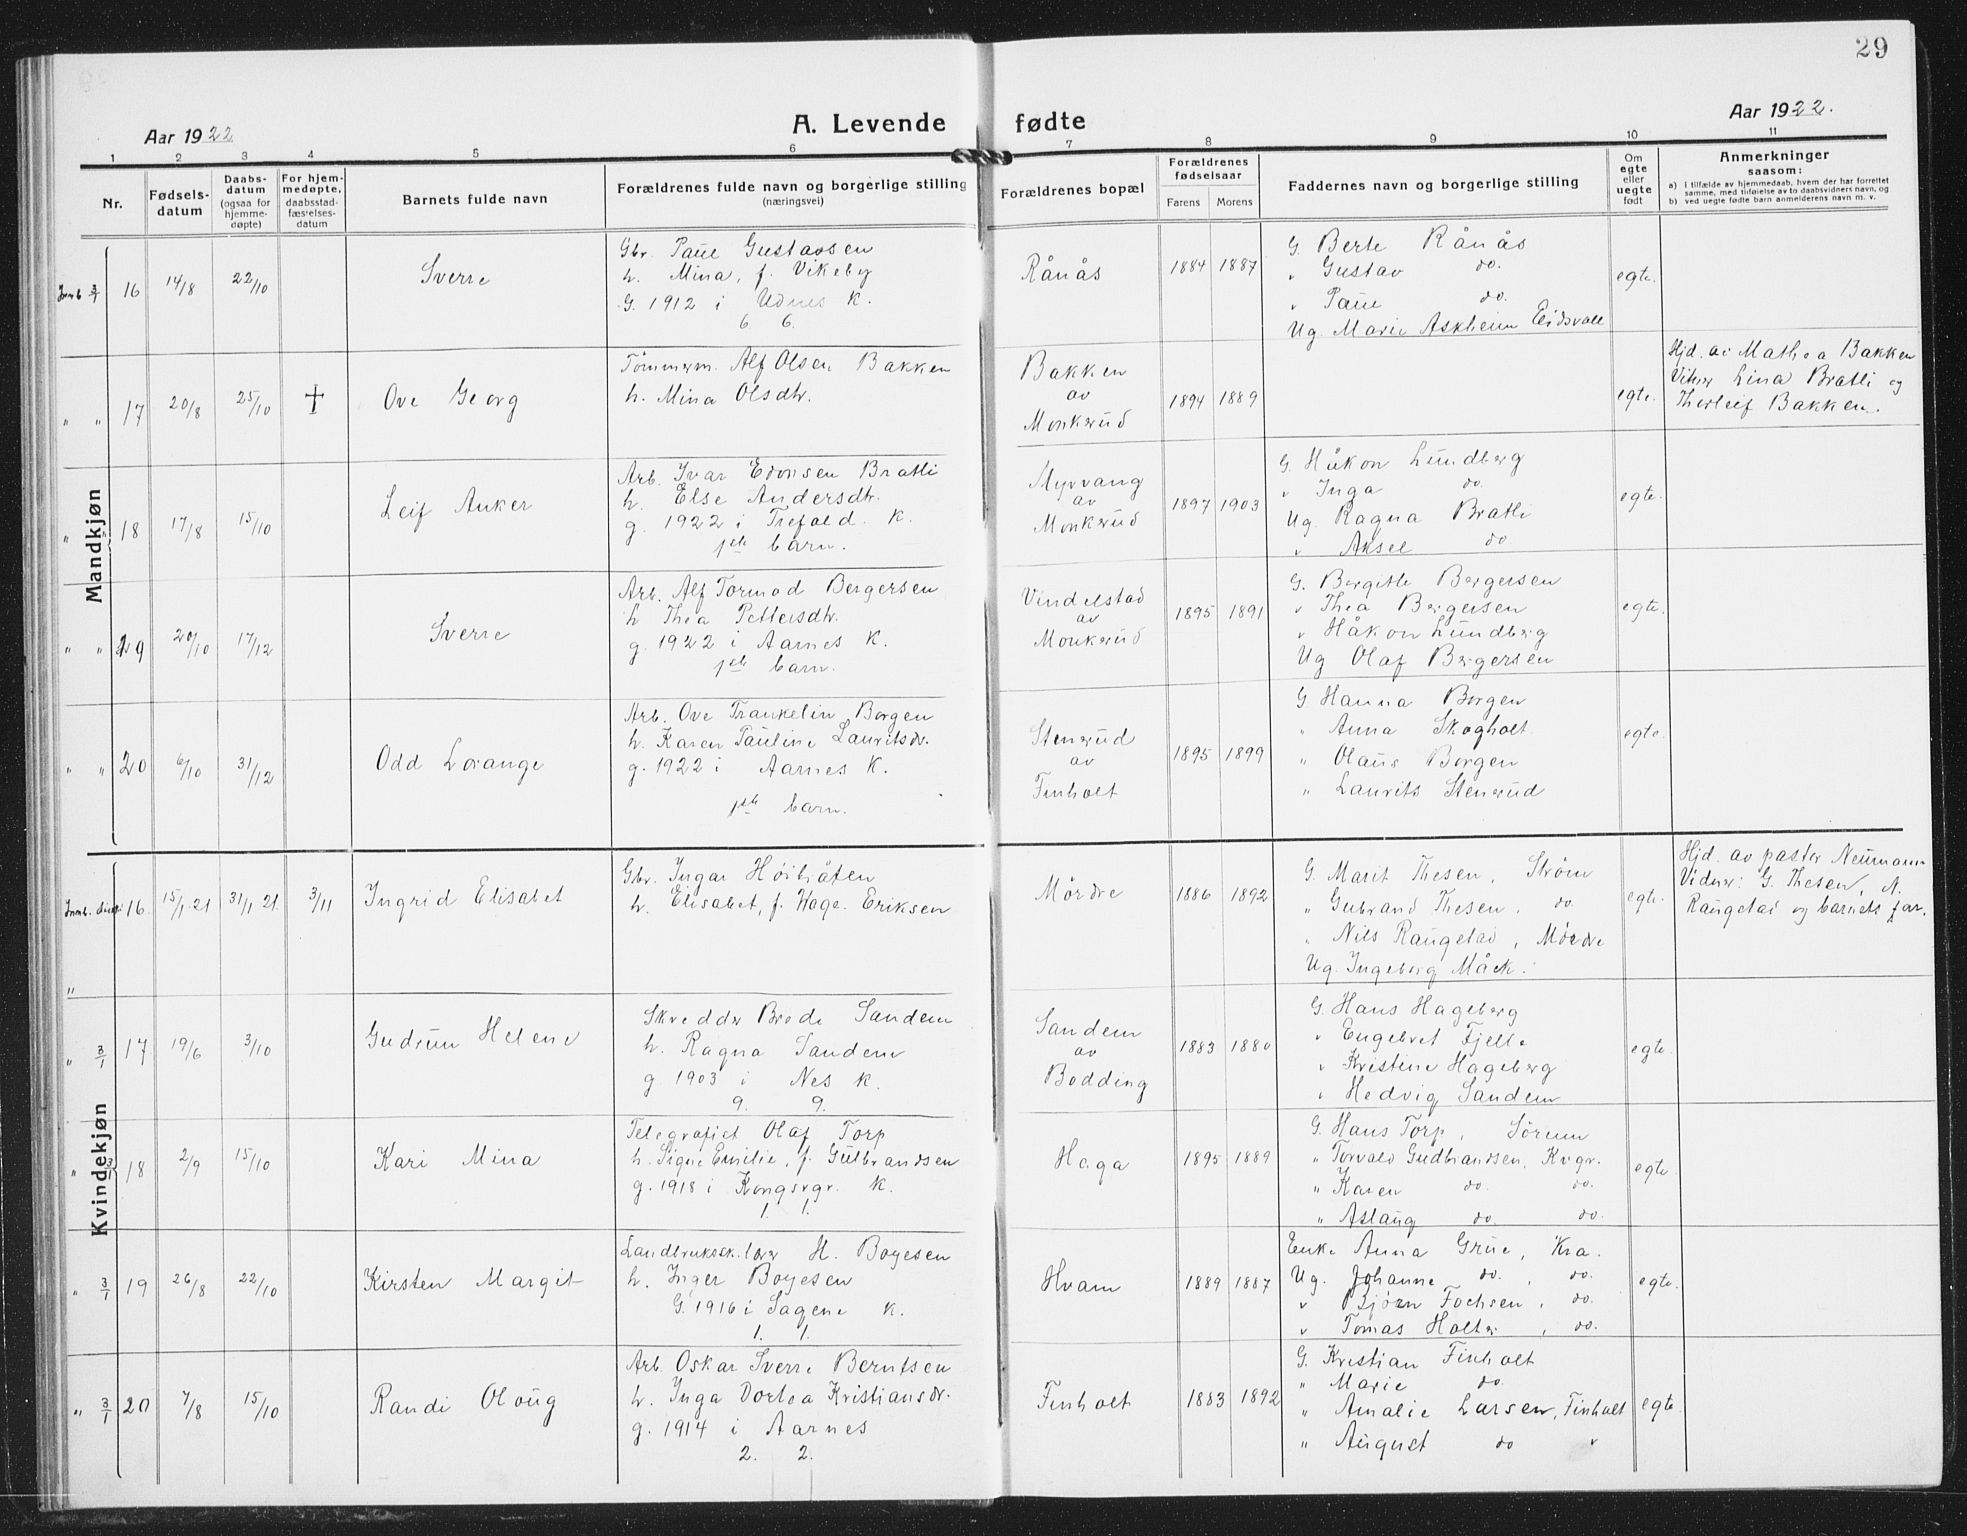 29
Aar 1922
A. Levende fødte
Aar 1922.
1 2 3 4 5 6 7 8 9 10 11
Nr.
Fødsels-
datum
Daabs-
datum
(ogsaa for
hjemme-
døpte)
For hjem-
medøpte,
daabsstad-
fæstelses-
datum
Barnets fulde navn
Forældrenes fulde navn og borgerlige stilling
(næringsvei)
Forældrenes bopæl
Forældrenes
fødselsaar
Farens Morens
Faddernes navn og borgerlige stilling
Om
egte
eller
uegte
født
Anmerkninger
saasom:
a) I tilfælde av hjemmedaab, hvem der har forrettet
samme, med tilføielse av to daabsvidners navn, og
b) ved uegte fødte barn anmelderens navn m. v.
Mandkjøn
16 14/8 22/10
Sverre
Gbr. Paul Gustavsen
h. Mina, f. Vikeby
G. 1912 i Udnes K.
6 6.
Rånås
1884 1887
G. Berte Rånås
" Gustav do.
" Paul do.
Ug. Marie Askheim Eidsvoll
egte.
" " 17 20/8 25/10 †
Ove Georg
Tømmerm. Alf Olsen Bakken
h. Mina Olsdtr.
Bakken
av
Monkrud
1894 1889
egte.
Hjd. av Mathea Bakken
Vitner Lina Bratli og
Thorleif Bakken.
" 18 17/8 15/10
Leif Anker
Arb. Ivar Edvinsen Bratli
h. Else Andersdtr.
g. 1922 i Trefold. K.
1ste barn.
Myrvang
av
Monkrud
1897 1903
G. Håkon Lundberg
" Inga do.
Ug. Ragna Bratli
" Aksel do.
egte.
" " 19 20/10 17/12
Sverre
Arb. Alf Tormod Bergersen
h. Thea Pettersdtr.
g. 1922 i Aarnes K.
1ste barn.
Vindelstad
av
Monkrud
1895 1891
G. Bergitte Bergersen
" Thea Bergersen
" Håkon Lundberg
Ug Olaf Bergersen
egte.
" " 20 6/10 31/12
Odd Lorange
Arb. Ove Frankelin Borgen
h. Karen Pauline Lauritsdr.
g. 1922 i Aarnes K.
1ste barn.
Stenrud
av
Finholt
1895 1899
G Hanna Borgen
" Anna Skogholt
" Olaus Borgen
" Laurits Stenrud
egte.
Kvindekjøn
16. 15/1.21 31/1 21. 3/11
Ingrid Elisabet
Gbr. Ingar Høibråten
h. Elisabet, f. Hage. Eriksen
Mördre
1886 1892
G. Marit Thesen, Strøm
" Gubrand Thesen, do.
" Nils Raugstad, Mördre
Ug. Ingeborg Måck.
egte.
Hjd. av pastor Neumann
Vidner: G. Thesen, N.
Raugstad og barnets far.
" 3/1 17 19/6 3/10
Gudrun Helene
Skredder Brede Sandem
h. Ragna Sandem
g. 1903 i Nes K.
9. 9.
Sandem
av
Bodding
1883 1880
G. Hans Hageberg
" Engebret Fjelle
" Kristine Hageberg
" Hedvig Sandem
egte.
" 3/1 18 2/9 15/10
Kari Mina
Telegrafist Olaf Torp
h. Signe Emilie, f. Gulbrandsen
g. 1918 i Kongsvgr. K.
1. 1.
Haga
1895 1889
G. Hans Torp, Sørum
" Torvald Gudbrandsen, Kvgr.
" Karen do. do.
" Aslaug do. do.
egte.
" 3/1 19 26/8 22/10
Kirsten Margit
H. Boyesen
h. Inger Boyesen
G. 1916 i Sagene K.
1. 1.
Hvam
1889 1887
Enke Anna Grue, Kra.
Ug. Johanne do., do.
" Bjørn Fochsen, do.
" Tomas Holter, do.
egte.
" 3/1 20 7/8 15/10
Randi Oloug
Arb. Oskar Sverre Berntsen
h. Inga Dortea Kristiansdr.
g. 1914 i Aarnes
2. 2.
Finholt
1883 1892
G. Kristian Finholt
" Marie do.
" Amalie Larsen, Finholt
" August do "
egte.